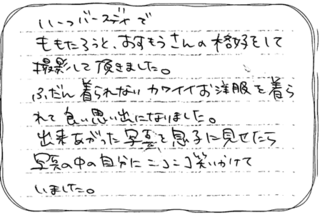 ハーフバースデイで
ももたろうと、おすもうさんの格好をして
撮影して頂きました。
ふだん着られないカワイイお洋服を着ら
れて良い思い出になりました。
出来あがった写真を息子に見せたら
写真の中の自分にニコニコ笑いかけて
いました。